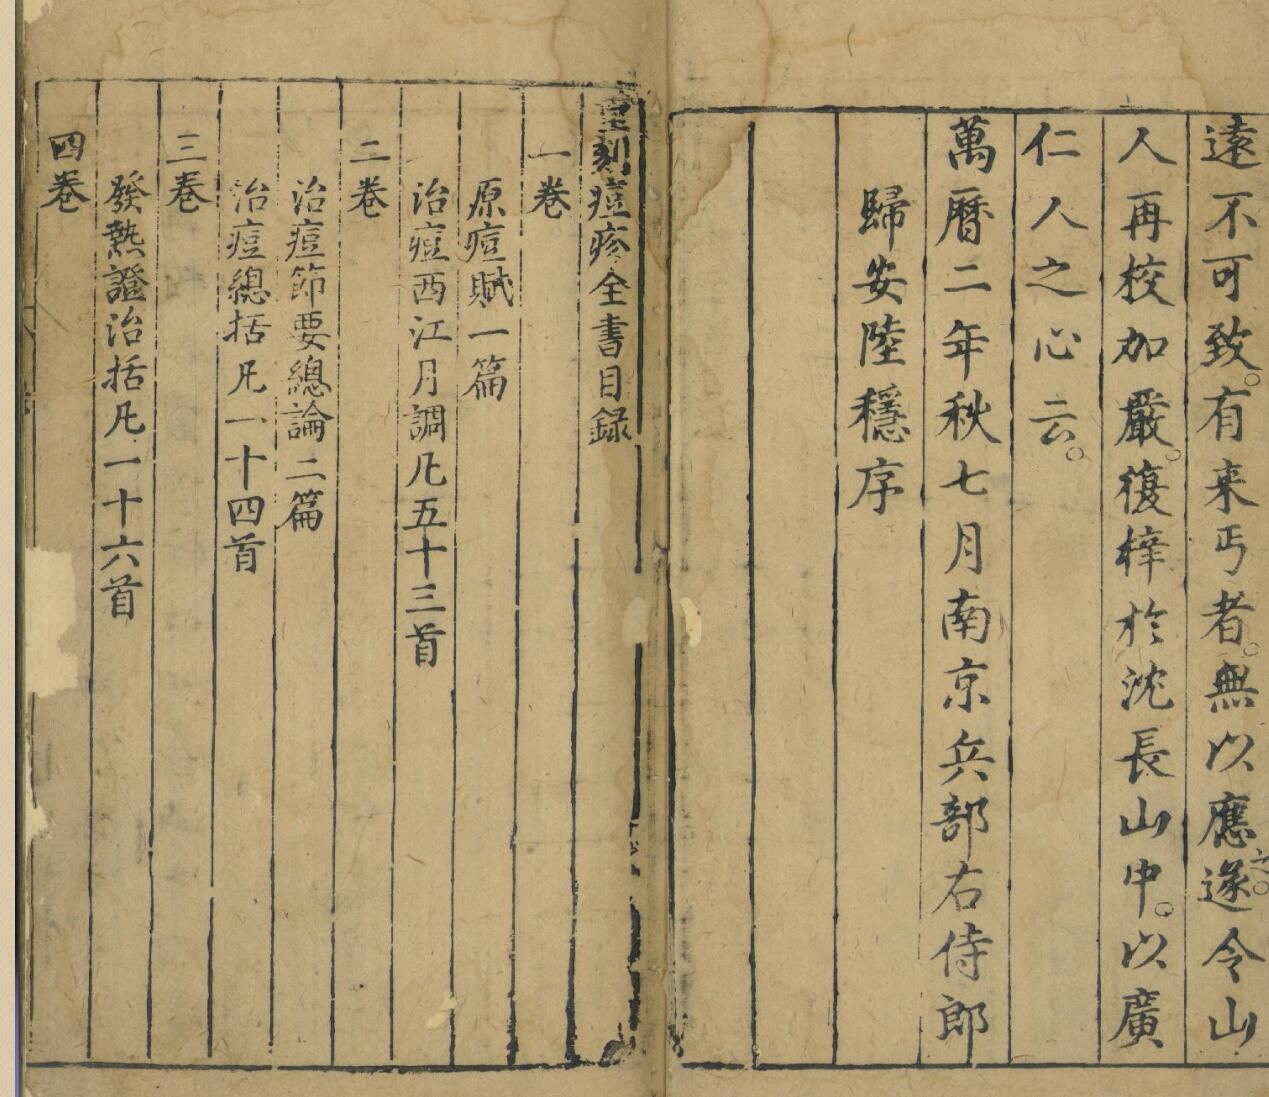 遠不可致。有来丐者。無以應之。遂令山
人再校加嚴。復梓於沈長山中。以廣
仁人之心云。
萬曆二年秋七月南京兵部右侍郎
歸安陸穩序
刻痘疹全書目録
一卷
原痘賦一篇
治痘西江月調凡五十三首
二卷
治痘節要總論二篇
治痘總括凡一十四首
三卷
發熱證治括凡一十六首
四卷